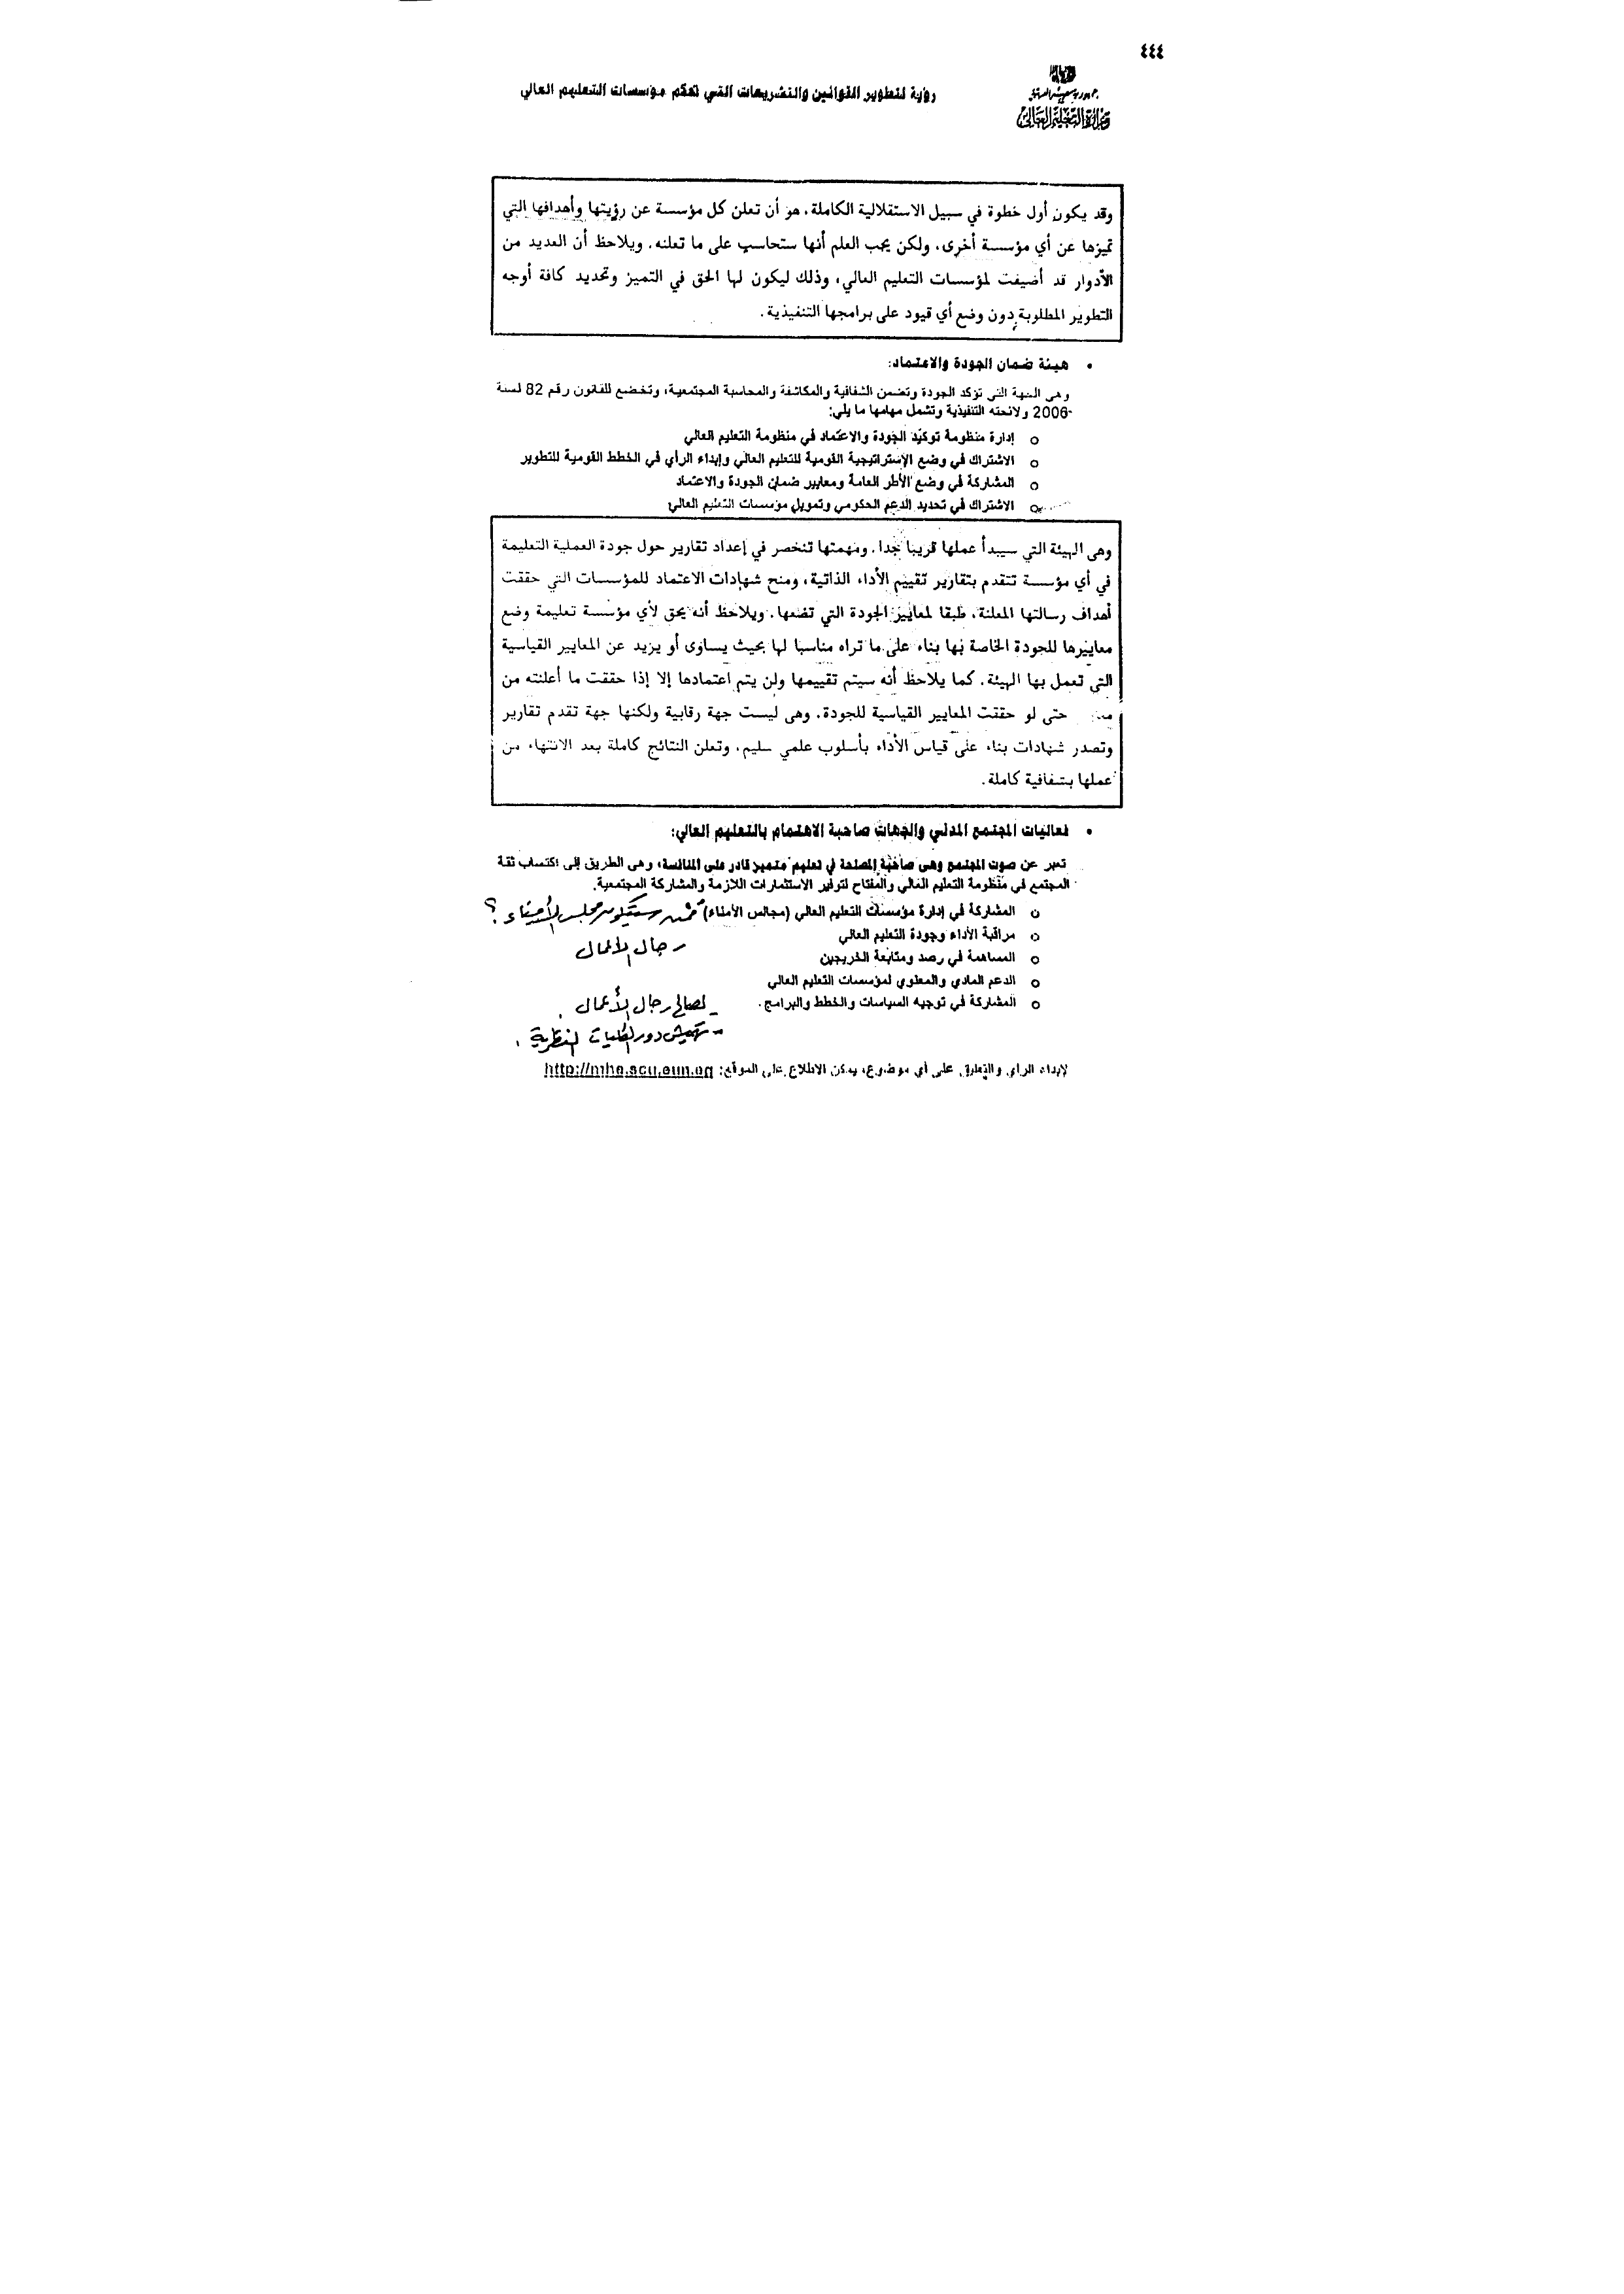 ٤٤٤
وزارة التعليم العالي
رؤية لتطوير القوانين والتشريعات التي تحكم مؤسسات التعليم العالي
وقد يكون أول خطوة في سبيل الاستقلالية الكاملة، هو أن تعلن كل مؤسسة عن رؤيتها وأهدافها التي
تميزها عن أي مؤسسة أخرى، ولكن يجب العلم أنها ستحاسب على ما تعلنه. ويلاحظ أن العديد من
الأدوار قد أضيفت لمؤسسات التعليم العالي، وذلك ليكون لها الحق في التميز وتحديد كافة أوجه
التطوير المطلوبة دون وضع أي قيود على برامجها التنفيذية.
• هيئة ضمان الجودة والاعتماد:
وهي الجهة التي تؤكد الجودة وتضمن الشفافية والمكاشفة والمحاسبة المجتمعية، وتخضع للقانون رقم 82 لسنة
2006 ولائحته التنفيذية وتشمل مهامها ما يلي:
o إدارة منظومة توكيد الجودة والاعتماد في منظومة التعليم العالي
o الاشتراك في وضع الإستراتيجية القومية للتعليم العالي وإبداء الرأي في الخطط القومية للتطوير
o المشاركة في وضع الأطر العامة ومعايير ضمان الجودة والاعتماد
o الاشتراك في تحديد الدعم الحكومي وتمويل مؤسسات التعليم العالي
وهى الهيئة التي سيبدأ عملها قريبا جدا. ومهمتها تنحصر في إعداد تقارير حول جودة العملية التعليمة
في أي مؤسسة تتقدم بتقارير تقييم الأداء الذاتية، ومنح شهادات الاعتماد للمؤسسات التي حققت
أهداف رسالتها المعلنة، طبقا لمعايير الجودة التي تضعها. ويلاحظ أنه يحق لأي مؤسسة تعليمة وضع
معاييرها للجودة الخاصة بها بناء على ما تراه مناسبا لها بحيث يساوى أو يزيد عن المعايير القياسية
التي تعمل بها الهيئة. كما يلاحظ أنه سيتم تقييمها ولن يتم اعتمادها إلا إذا حققت ما أعلنته من
حتى لو حققت المعايير القياسية للجودة. وهى ليست جهة رقابية ولكنها جهة تقدم تقارير
وتصدر شهادات بناء على قياس الأداء بأسلوب علمي سليم. وتعلن النتائج كاملة بعد الانتهاء من
عملها بشفافية كاملة.
• فعاليات المجتمع المدني والجهات صاحبة الاهتمام بالتعليم العالي:
تعبر عن صوت المجتمع وهى صاحبة المصلحة في تعليم متميز قادر على المنافسة، وهى الطريق إلى اكتساب ثقة
المجتمع في منظومة التعليم العالي والمفتاح لتوفير الاستثمارات اللازمة والمشاركة المجتمعية.
o المشاركة في إدارة مؤسسات التعليم العالي (مجالس الأمناء) ممن ستكون مجلس الأمناء؟
o مراقبة الأداء وجودة التعليم العالي
رجال الأعمال
o المساهمة في رصد ومتابعة الخريجين
o الدعم المادي والمعنوي لمؤسسات التعليم العالي
o المشاركة في توجيه السياسات والخطط والبرامج.
- لصالح رجال الأعمال.
- تهميش دور الكليات النظرية.
لإبداء الرأي والتعليق على أي موضوع، يمكن الاطلاع على الموقع: http://mhe.scu.eun.eg